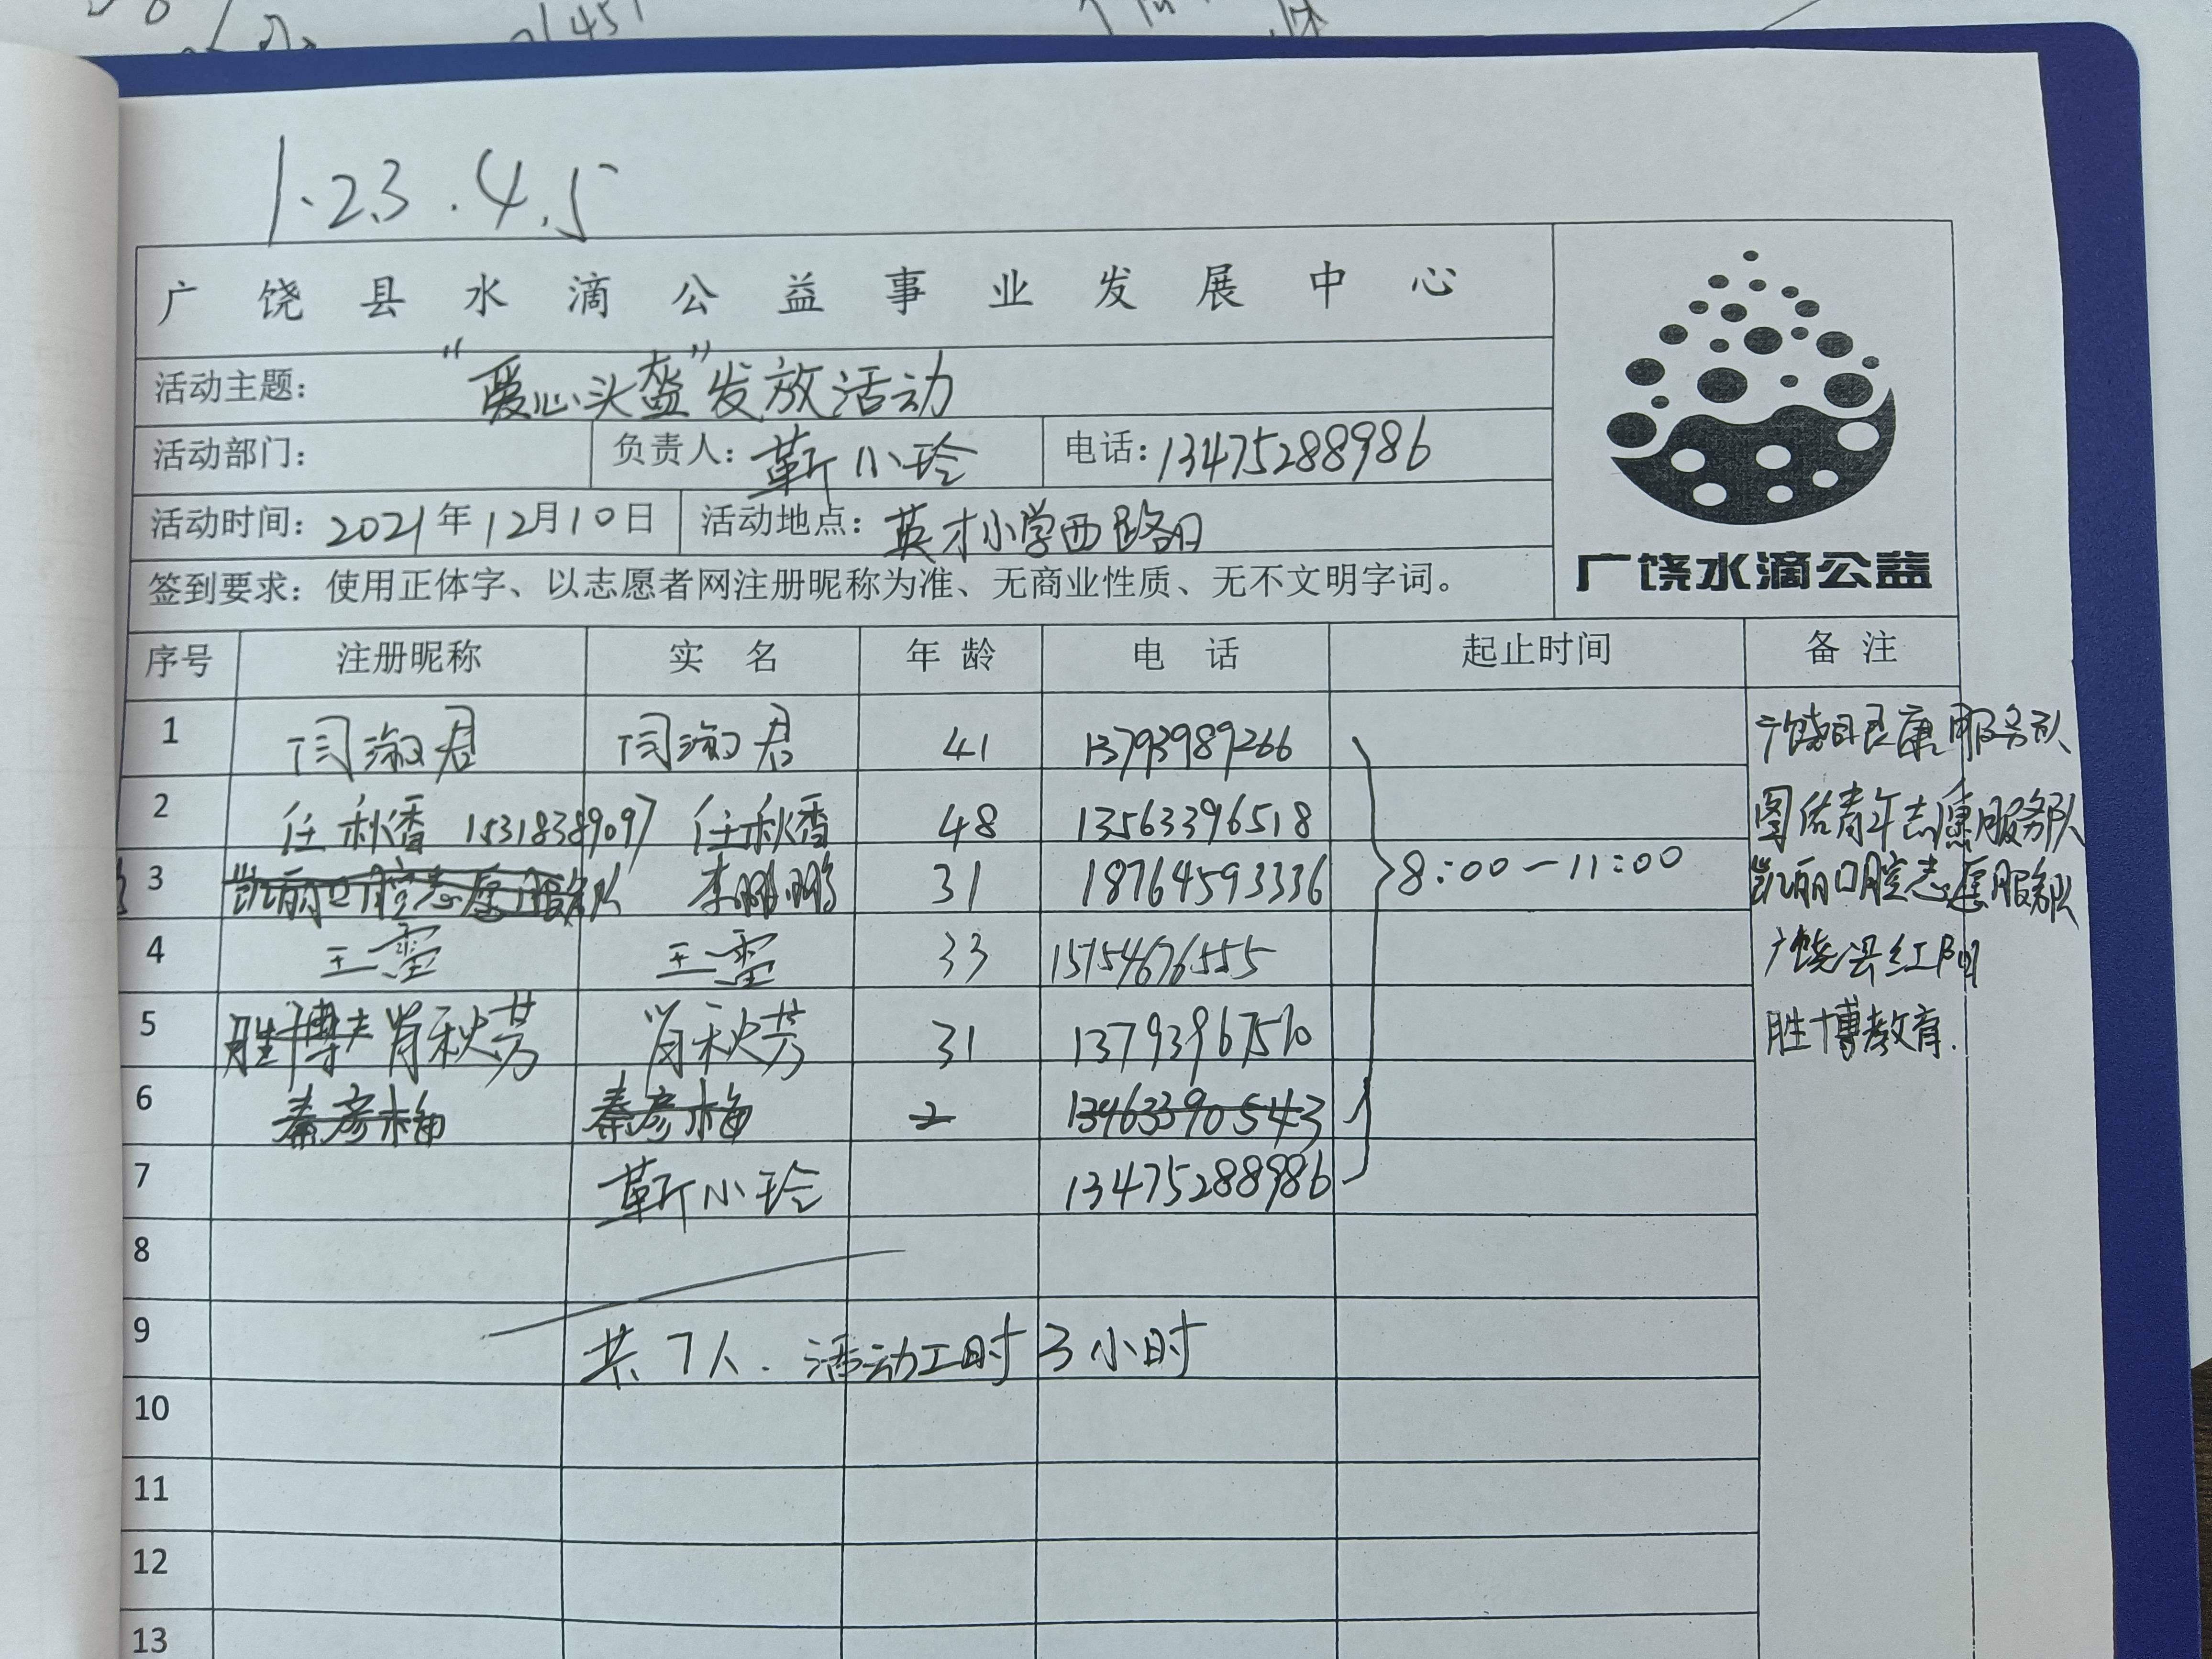 1.2.3.4.5
广饶县水滴公益事业发展中心
活动主题： “爱心头盔”发放活动
活动部门： 负责人：靳小玲 电话：13475288986
活动时间：2021年12月10日 活动地点：英才小学西路口
签到要求：使用正体字、以志愿者网注册昵称为准、无商业性质、无不文明字词。
广饶水滴公益
序号 注册昵称 实名 年龄 电话 起止时间 备注
1 闫淑君 闫淑君 41 13793989266 服务队
2 任秋香 15318389097 任秋香 48 13563396518 青年志愿服务队
3 凯丽口腔志愿服务队 李鹏鹏 31 18764593336 8:00-11:00 凯丽口腔志愿服务队
4 王雷 王雷 33 15754676555 广饶县红阳
5 胜博 肖秋芳 肖秋芳 31 13793967510 胜博教育.
6 秦彦梅 秦彦梅 2 13463390543
7 靳小玲 13475288986
8
9 共7人.活动工时3小时
10
11
12
13